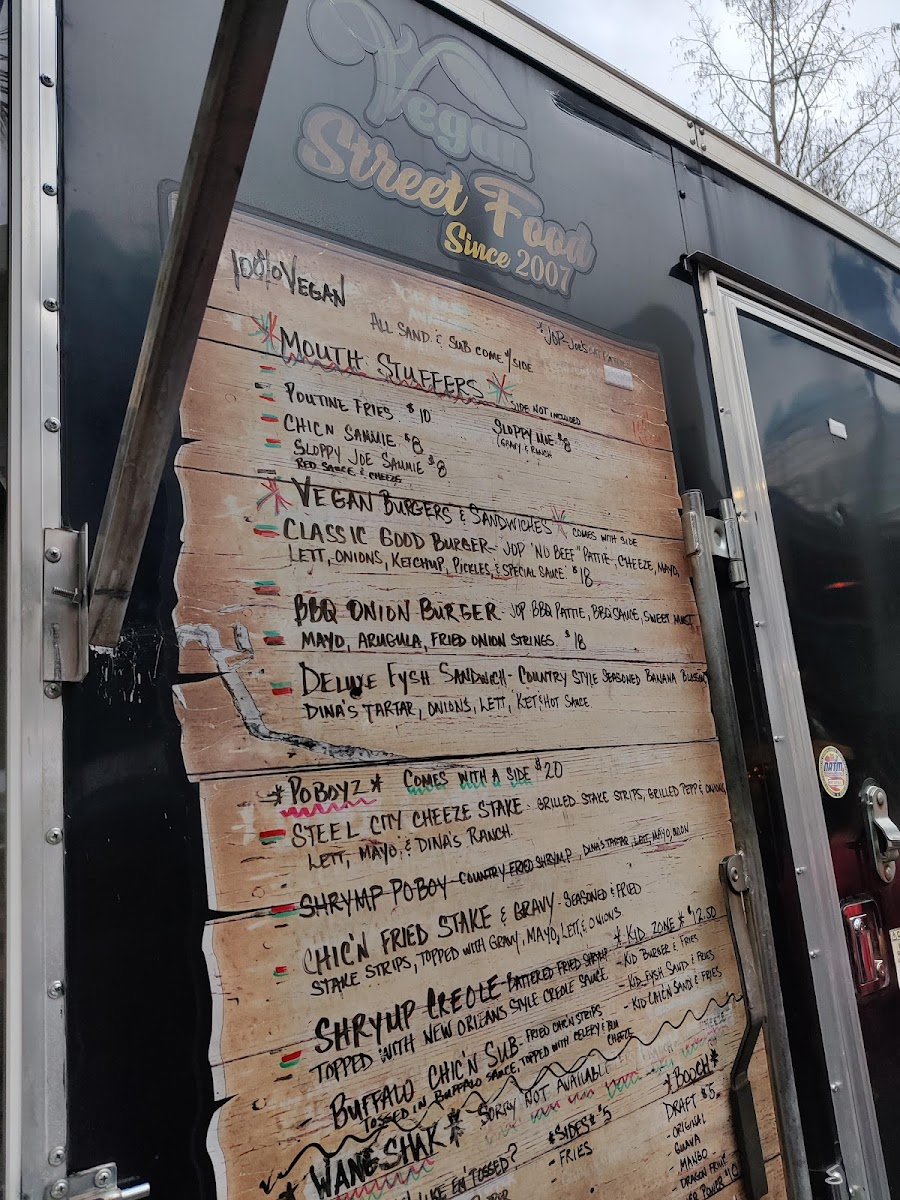 Vegan
Street Food
Since 2007
100% VEGAN
ALL SAND. & SUB COME W/ SIDE
* MOUTH STUFFERS *
SIDE NOT INCLUDED
POUTINE FRIES $10
CHICN SAMMIE $8
SLOPPY JOE SAMMIE $8
RED SAUCE & CHEEZE
SLOPPY MIE $8
GRAVY & RANCH
* VEGAN BURGERS & SANDWICHES * COMES WITH SIDE
CLASSIC GOOD BURGER - JOP "NO BEEF" PATTIE, CHEEZE, MAYO,
LETT, ONIONS, KETCHUP, PICKLES, & SPECIAL SAUCE. $18
BBQ ONION BURGER JOP BBQ PATTIE, BBQ SAUCE, SWEET MUST
MAYO, ARUGULA, FRIED ONION STRINGS. $18
DELUXE FYSH SANDWICH - COUNTRY STYLE SEASONED BANANA BLOSSOM
DINA'S TARTAR, ONIONS, LETT, KET & HOT SAUCE
* POBOYZ * COMES WITH A SIDE $20
STEEL CITY CHEEZE STAKE - GRILLED STAKE STRIPS, GRILLED PEPP & ONIONS
LETT, MAYO, & DINA'S RANCH.
SHRYMP POBOY - COUNTRY FRIED SHRYMP, DINA'S TARTAR, LETT, MAYO, ONION
CHIC'N FRIED STAKE & GRAVY - SEASONED & FRIED
STAKE STRIPS, TOPPED WITH GRAVY, MAYO, LETT, & ONIONS
SHRYMP CREOLE - BATTERED FRIED SHRYMP
TOPPED WITH NEW ORLEANS STYLE CREOLE SAUCE
BUFFALO CHIC'N SUB - FRIED CHIC'N STRIPS
TOSSED IN BUFFALO SAUCE, TOPPED WITH CELERY & BLU
CHEEZE
* KID ZONE * $12.50
- KID BURGER & FRIES
- KID FYSH SAND & FRIES
- KID CHIC'N SAND & FRIES
* WANG SHAK * SORRY NOT AVAILABLE
LIKE EM TOSSED?
*SIDES* $5
- FRIES
*BOOCH*
DRAFT $5
- ORIGINAL
- GUAVA
- MANGO
- DRAGON FRUIT
POWER $10